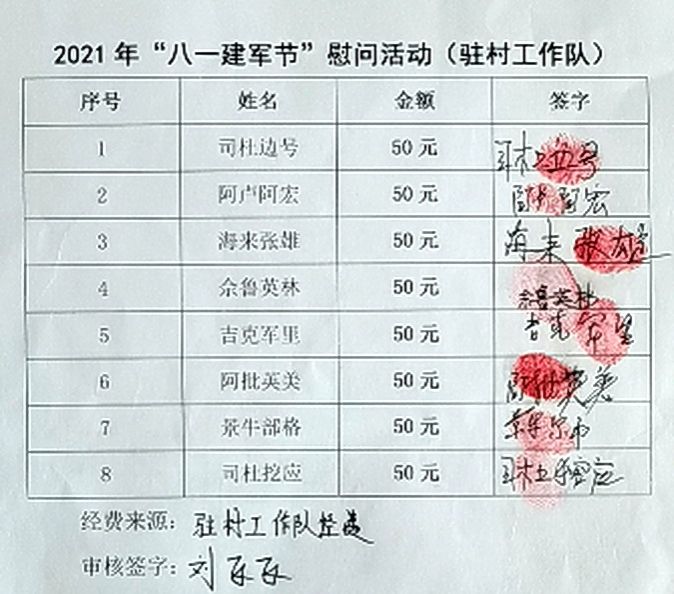 2021年“八一建军节”慰问活动（驻村工作队）
序号 姓名 金额 签字
1 司杜边号 50元
2 阿卢阿宏 50元 阿卢阿宏
3 海来张雄 50元 海来张雄
4 佘鲁英林 50元 佘鲁英林
5 吉克军里 50元 吉克军里
6 阿批英美 50元 阿批英美
7 景牛部格 50元
8 司杜挖应 50元
经费来源：驻村工作队经费
审核签字：刘